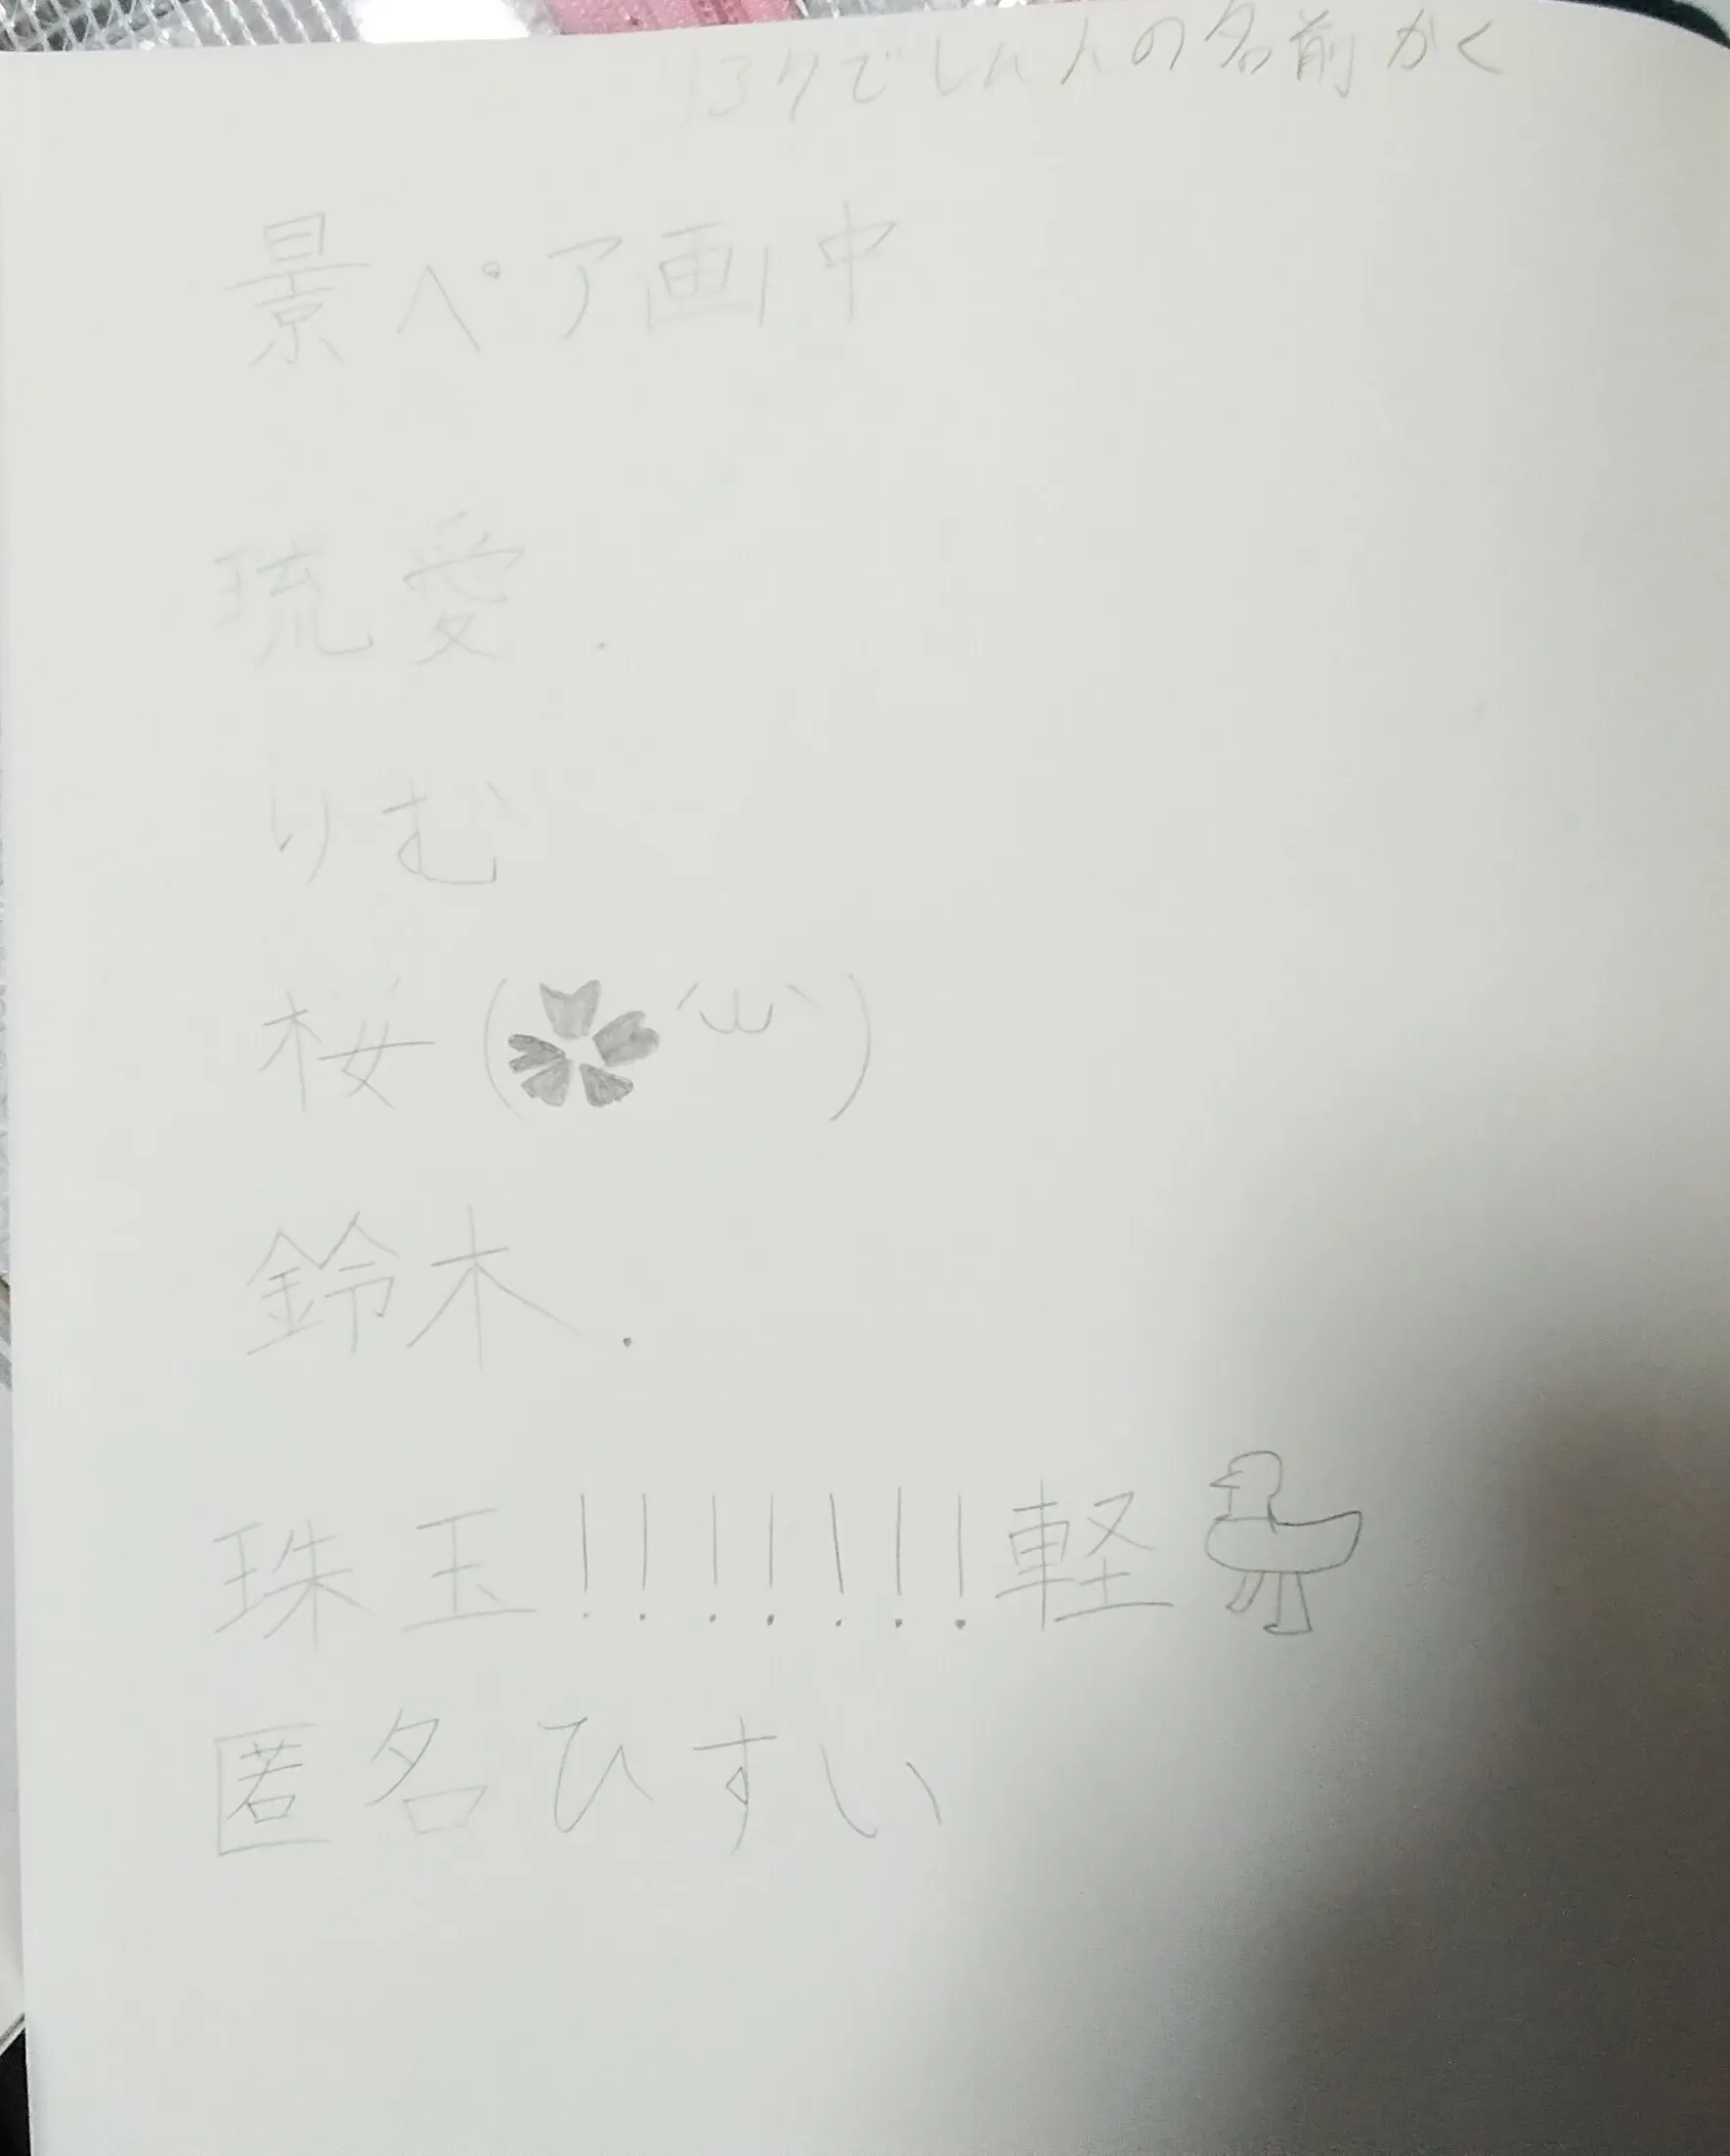 の名前かく
景ペア画中
琉愛.
りむ
桜(🌸 ´ω`)
鈴木.
珠玉!!!!!!!軽🦆
匿名ひすい